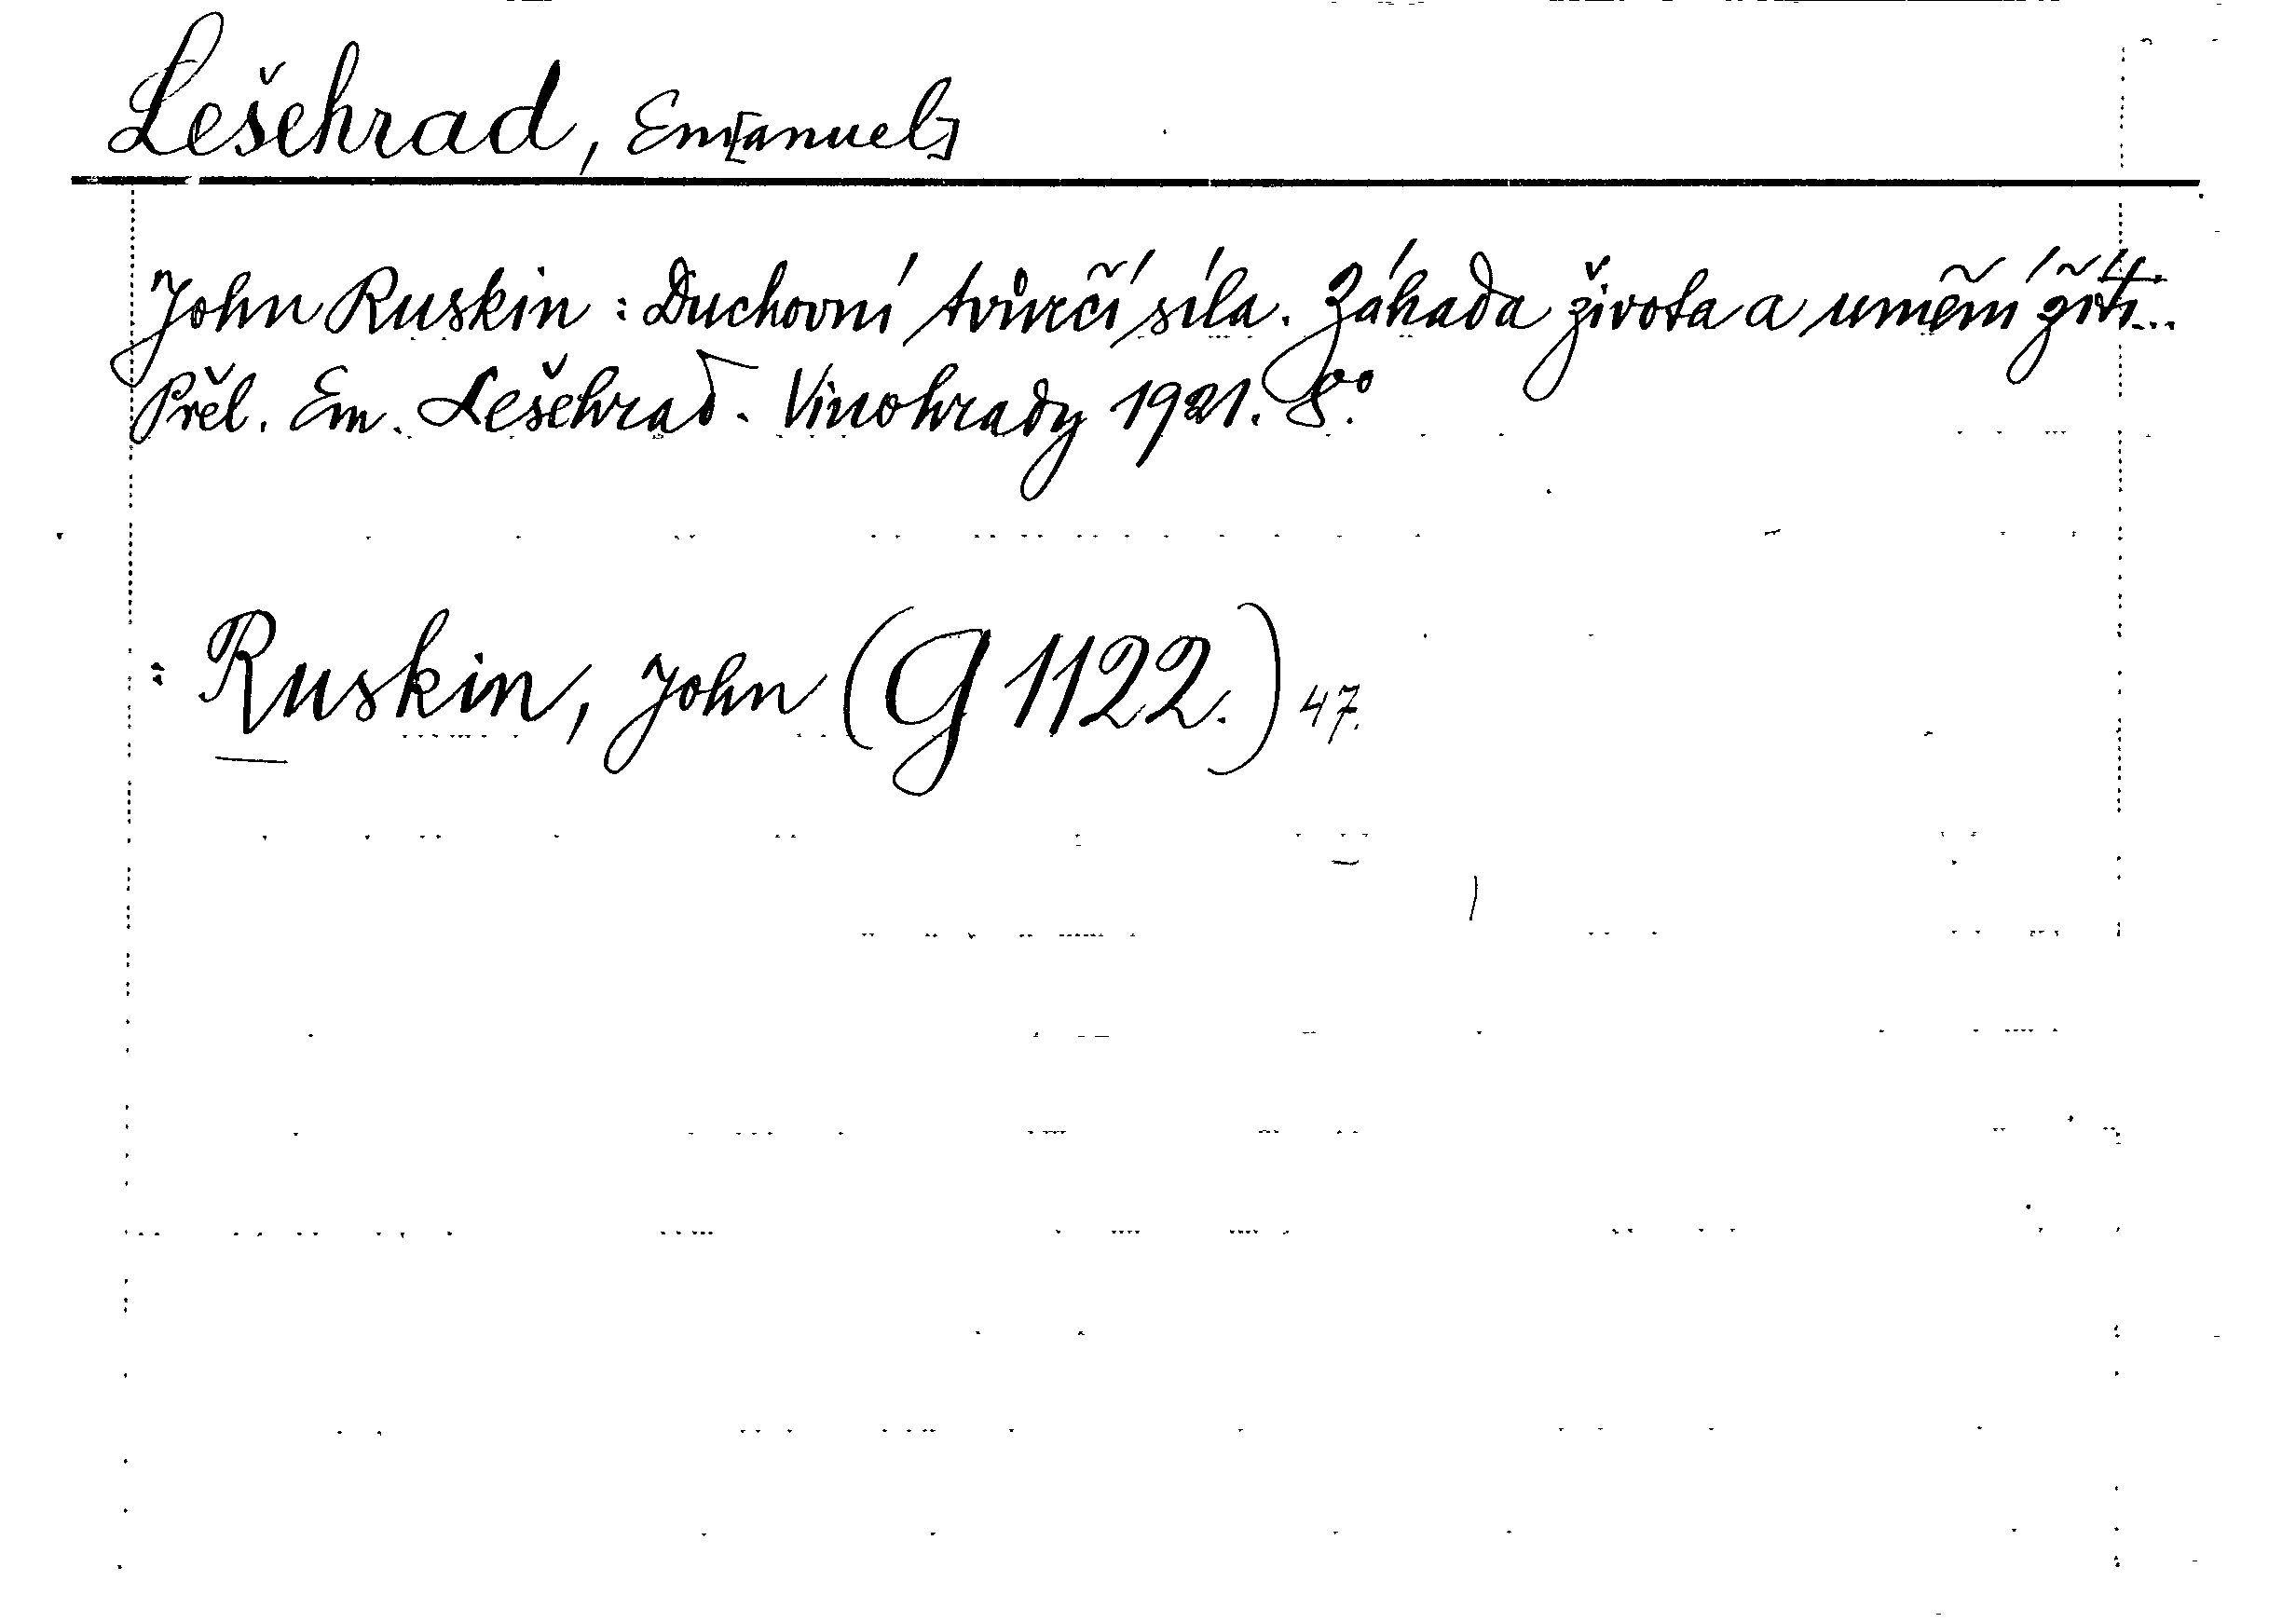 Lešehrad, Em[anuel]
John Ruskin: Duchovní tvůrčí síla. Záhada života a umění žíti...
Přel. Em. Lešehrad. Vinohrady 1921. 8°.
: Ruskin, John (G 1122.) 47.